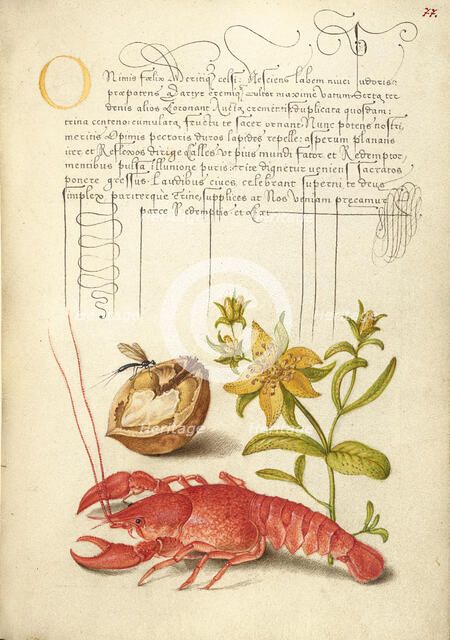 77.
O
Nimis fœlix Meritiq celsi: Nesciens labem nivei pudoris:
præpotens Martyr eremiq Cultor maxime Vatum. Serta ter
denis alios Coronant Aucta crementis duplicata quosdam:
trina centeno: cumulata fructu te sacer ornant. Nunc potens nostri,
meritis Opimis pectoris duros lapides repelle: asperum planans
iter et Reflexos dirige Calles. Vt pius mundi Sator et Redemptor,
mentibus pulsa illunione puris: rite dignetur veniens Sacratos
ponere gressus. Laudibus cives celebrant superni te deus
simplex pariterque Trine, supplices at Nos Veniam precamur
parce Redemptis et
Heritage
Heritage
Heritage
Heritage